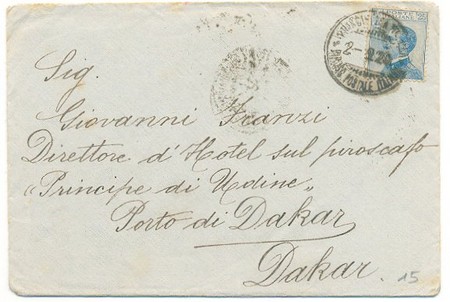 Sig.
Giovanni Franzi
Direttore d'Hotel sul piroscafo
"Principe di Udine"
Porto di Dakar
Dakar.
15